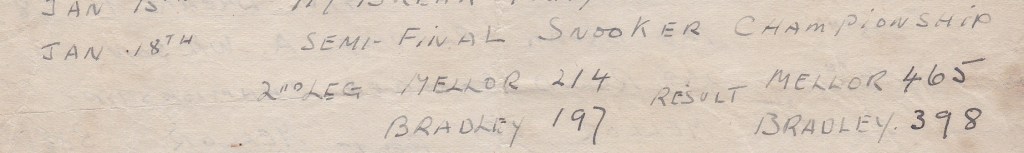 JAN 15TH MY BREAK
JAN. 18TH SEMI-FINAL SNOOKER CHAMPIONSHIP
2ND LEG MELLOR 214 RESULT MELLOR 465
BRADLEY 197 BRADLEY. 398